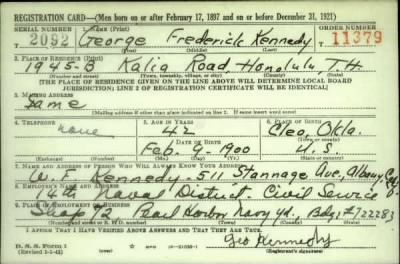 REGISTRATION CARD—(Men born on or after February 17, 1897 and on or before December 31, 1921)
SERIAL NUMBER 1. NAME (Print) ORDER NUMBER
2092 George Frederick Kennedy 11379
(First) (Middle) (Last)
2. PLACE OF RESIDENCE (Print)
1945-B Kalia Road Honolulu, T.H.
(Number and street) (Town, township, village, or city) (County) (State)
[THE PLACE OF RESIDENCE GIVEN ON THE LINE ABOVE WILL DETERMINE LOCAL BOARD
JURISDICTION; LINE 2 OF REGISTRATION CERTIFICATE WILL BE IDENTICAL]
3. MAILING ADDRESS
Same
[Mailing address if other than place indicated on line 2. If same insert word same]
4. TELEPHONE 5. AGE IN YEARS 6. PLACE OF BIRTH
none 42 Cleo, Okla.
DATE OF BIRTH
Feb. 9 - 1900 U.S.
7. NAME AND ADDRESS OF PERSON WHO WILL ALWAYS KNOW YOUR ADDRESS
W. F. Kennedy - 511 Stannage Ave, Albany Cal
8. EMPLOYER'S NAME AND ADDRESS
14th Naval District. Civil Service
9. PLACE OF EMPLOYMENT OR BUSINESS
Shop 72 Pearl Harbor Navy Yd., Bdge #722283
(Number and street or R. F. D. number) (Town) (County) (State)
I AFFIRM THAT I HAVE VERIFIED ABOVE ANSWERS AND THAT THEY ARE TRUE.
D. S. S. Form 1
(Revised 1-1-42)
Geo Kennedy